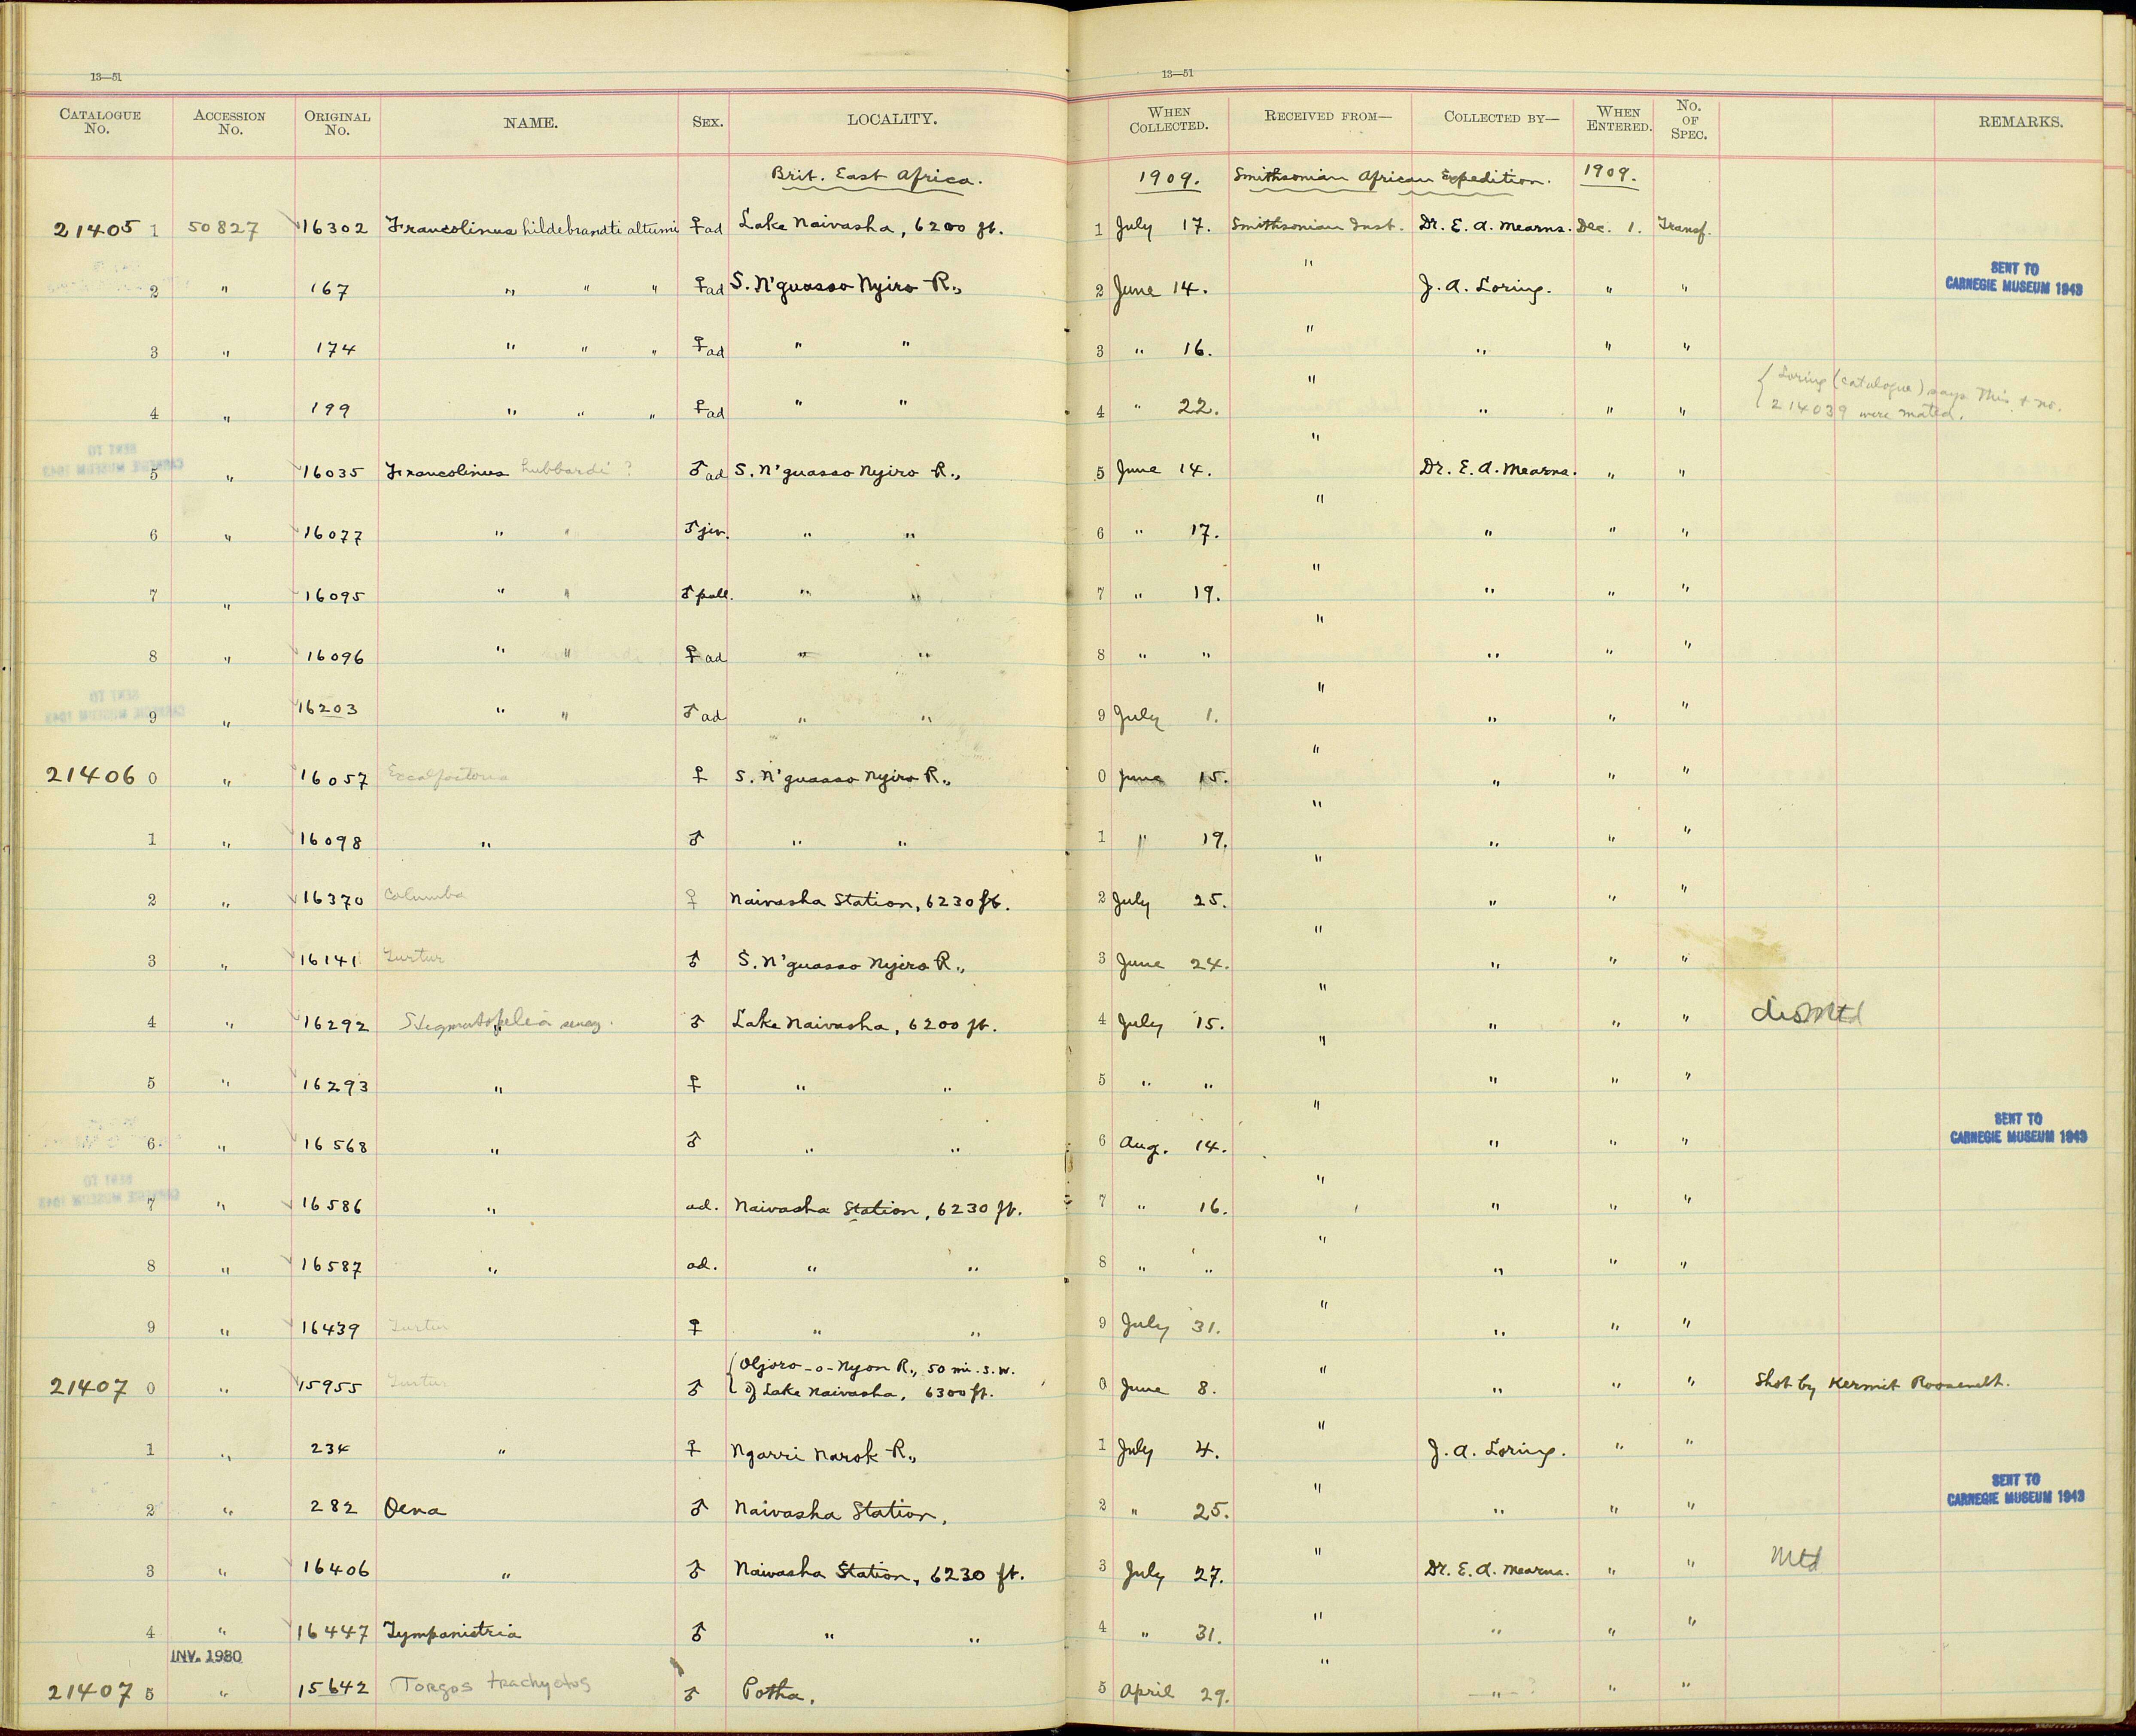 13—51 13—51
CATALOGUE No. ACCESSION No. ORIGINAL No. NAME. SEX. LOCALITY. WHEN COLLECTED. RECEIVED FROM— COLLECTED BY— WHEN ENTERED. No. OF SPEC. REMARKS.
Brit. East Africa. 1909. Smithsonian African Expedition. 1909.
21405 1 50827 16302 Francolinus hildebrandti altumi ♀ ad Lake Naivasha, 6200 ft. 1 July 17. Smithsonian Inst. Dr. E. A. Mearns. Dec. 1. Transf.
2 " 167 " " " ♀ ad S. N'guasso Nyiro R., 2 June 14. " J. A. Loring. " " SENT TO CARNEGIE MUSEUM 1943
3 " 174 " " " ♀ ad " " 3 " 16. " " " "
4 " 199 " " " ♀ ad " " 4 " 22. " " " " { Loring (catalogue) says this + no. 214039 were mated.
5 " 16035 Francolinus hubbardi ? ♂ ad S. N'guasso Nyiro R., 5 June 14. " Dr. E. A. Mearns. " "
6 " 16077 " " ♂ juv. " " 6 " 17. " " " "
7 " 16095 " " ♂ pull. " " 7 " 19. " " " "
8 " 16096 " " ♀ ad " " 8 " " " " " "
9 " 16203 " " ♂ ad " " 9 July 1. " " " "
21406 0 " 16057 Excalfactoria ♀ S. N'guasso Nyiro R., 0 June 15. " " " "
1 " 16098 " ♂ " " 1 " 19. " " " "
2 " 16370 Columba ♀ Naivasha Station, 6230 ft. 2 July 25. " " " "
3 " 16141 Turtur ♂ S. N'guasso Nyiro R., 3 June 24. " " " "
4 " 16292 Stigmatopelia seneg. ♂ Lake Naivasha, 6200 ft. 4 July 15. " " " " disMtd
5 " 16293 " ♀ " " 5 " " " " " "
6 " 16568 " ♂ " " 6 Aug. 14. " " " " SENT TO CARNEGIE MUSEUM 1943
7 " 16586 " ad. Naivasha Station, 6230 ft. 7 " 16. " " " "
8 " 16587 " ad. " " 8 " " " " " "
9 " 16439 Turtur ♀ " " 9 July 31. " " " "
21407 0 " 15955 Turtur ♂ { Oljoro-o-Nyon R., 50 mi. S.W. of Lake Naivasha, 6300 ft. 0 June 8. " " " " Shot by Kermit Roosevelt.
1 " 234 " ♀ Ngarri Narok R., 1 July 4. " J. A. Loring. " "
2 " 282 Oena ♂ Naivasha Station, 2 " 25. " " " " SENT TO CARNEGIE MUSEUM 1943
3 " 16406 " ♂ Naivasha Station, 6230 ft. 3 July 27. " Dr. E. A. Mearns. " " Mtd
4 " 16447 Tympanistria ♂ " " 4 " 31. " " " "
INV. 1980
21407 5 " 15642 Torgos trachyotos ♂ Potha, 5 April 29. " " ? " "